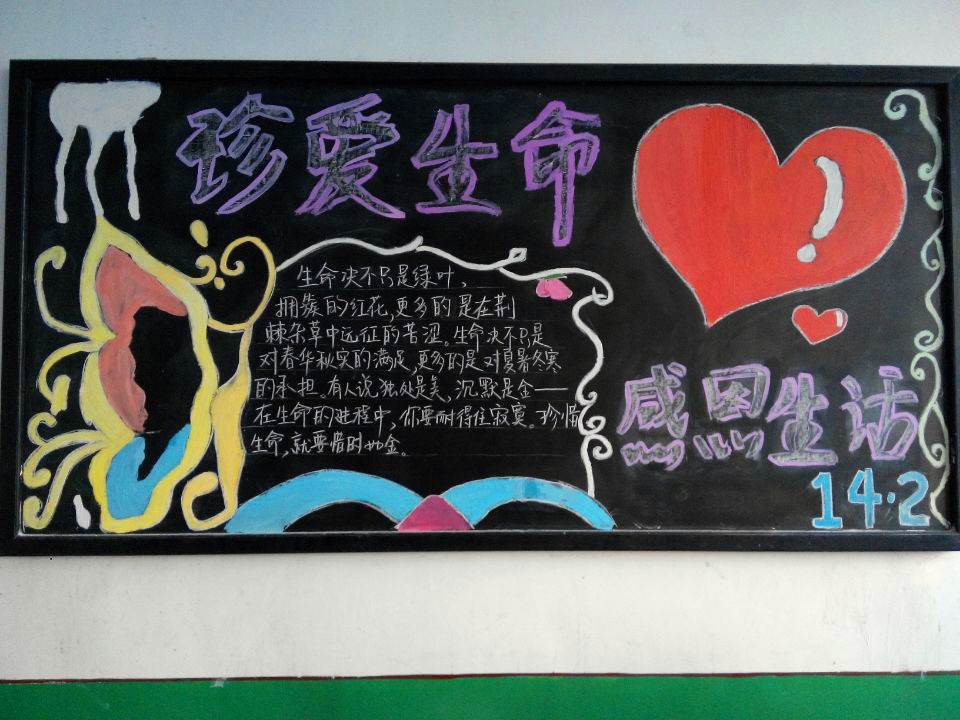 珍爱生命
生命决不只是绿叶、
拥簇的红花,更多的是在荆
棘杂草中远征的苦涩。生命决不只是
对春华秋实的满足,更多的是对夏暑冬寒
的承担。有人说独处是美,沉默是金——
在生命的进程中,你要耐得住寂寞。珍惜
生命,就要惜时如金。
感恩生活
14·2